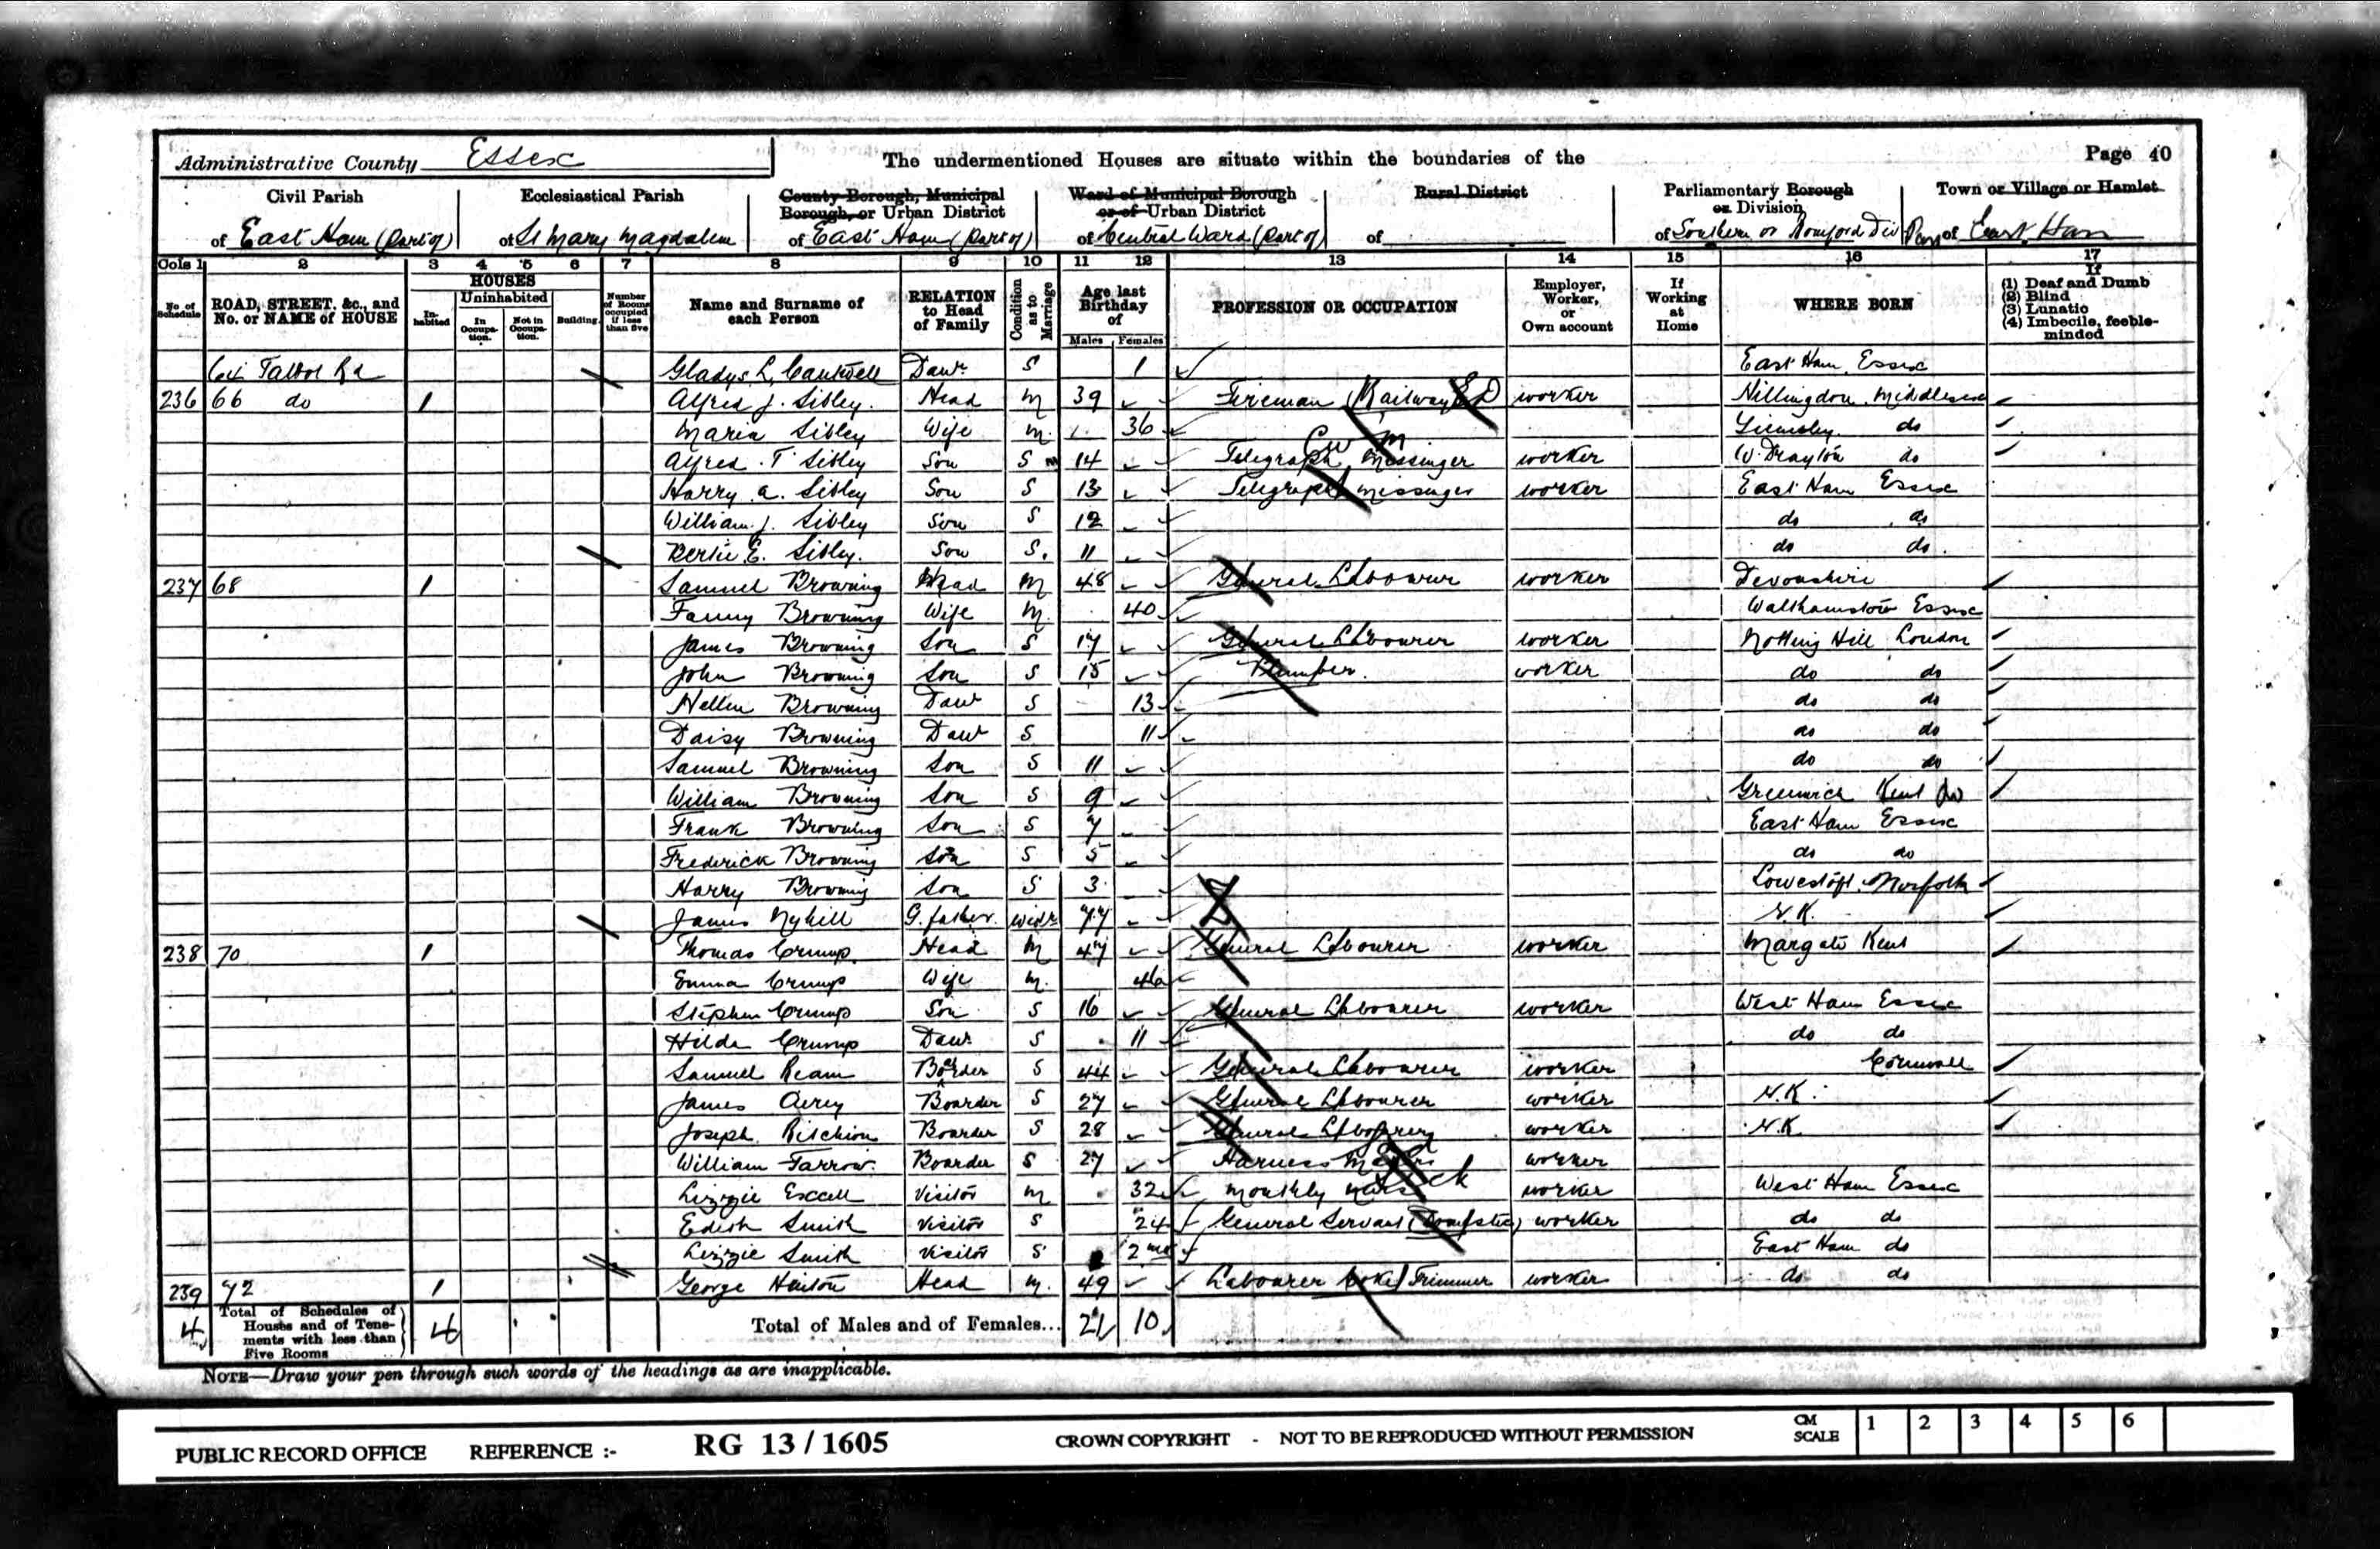 Administrative County Essex The undermentioned Houses are situate within the boundaries of the Page 40
Civil Parish Ecclesiastical Parish County Borough, Municipal Borough, or Urban District Ward of Municipal Borough or of Urban District Rural District Parliamentary Borough or Division Town or Village or Hamlet
of East Ham (part of) of St Mary Magdalem of East Ham (part of) of Central Ward (part of) of of Southern or Romford Div of East Ham
Cols 1 2 3 4 5 6 7 8 9 10 11 12 13 14 15 16 17
No of Schedule ROAD, STREET, &c., and No. or NAME of HOUSE HOUSES Inhabited Uninhabited In Occupation. Not in Occupation. Building. Number of Rooms occupied if less than five Name and Surname of each Person RELATION to Head of Family Condition as to Marriage Age last Birthday of Males Females PROFESSION OR OCCUPATION Employer, Worker, or Own account If Working at Home WHERE BORN If (1) Deaf and Dumb (2) Blind (3) Lunatic (4) Imbecile, feeble-minded
64 Talbot Rd Gladys L. Cantwell Daur S 1 East Ham Essex
236 66 do 1 Alfred J. Sibley Head M 39 Fireman (Railway) worker Hillingdon Middlesex
Maria Sibley Wife M 36 do
Alfred T Sibley Son S 14 Telegraph Messinger worker W. Drayton do
Harry A. Sibley Son S 13 Telegraph Messinger worker East Ham Essex
William J. Sibley Son S 12 do do
Bertie E. Sibley. Son S. 11 do do.
237 68 1 Samuel Browning Head M 48 General Labourer worker Devonshire
Fanny Browning Wife M 40 Walthamstow Essex
James Browning Son S 17 General Labourer worker Notting Hill London
John Browning Son S 15 Plumber. worker do do
Hellen Browning Daur S 13 do do
Daisy Browning Daur S 11 do do
Samuel Browning Son S 11 do do
William Browning Son S 9 Greenwich Kent do
Frank Browning Son S 7 East Ham Essex
Frederick Browning Son S 5 do do
Harry Browning Son S 3 Lowestoft Norfolk
James Nyhill G. father. Widr 77 N.K.
238 70 1 Thomas Crump Head M 47 General Labourer worker Margate Kent
Emma Crump Wife M. 46
Stephen Crump Son S 16 General Labourer worker West Ham Essex
Hilda Crump Daur S 11 do do
Samuel Ream Boarder S 44 General Labourer worker Cornwall
James Aery Boarder S 27 General Labourer worker N.K.
Joseph Boarder S 28 General Labourer worker N.K.
William Farrow Boarder S 27 Harness Maker worker
Lizzie Excell Visitor M 32 Monthly Nurse Sick worker West Ham Essex
Edith Smith Visitor S 24 General Servant (Domestic) worker do do
Lizzie Smith Visitor S 2 mo East Ham do
239 72 1 George Hinton Head M. 49 Labourer Coke Trimmer worker do do
4 Total of Schedules of Houses and of Tenements with less than Five Rooms 4 Total of Males and of Females... 21 10
NOTE—Draw your pen through such words of the headings as are inapplicable.
PUBLIC RECORD OFFICE REFERENCE :- RG 13 / 1605 CROWN COPYRIGHT - NOT TO BE REPRODUCED WITHOUT PERMISSION CM SCALE 1 2 3 4 5 6